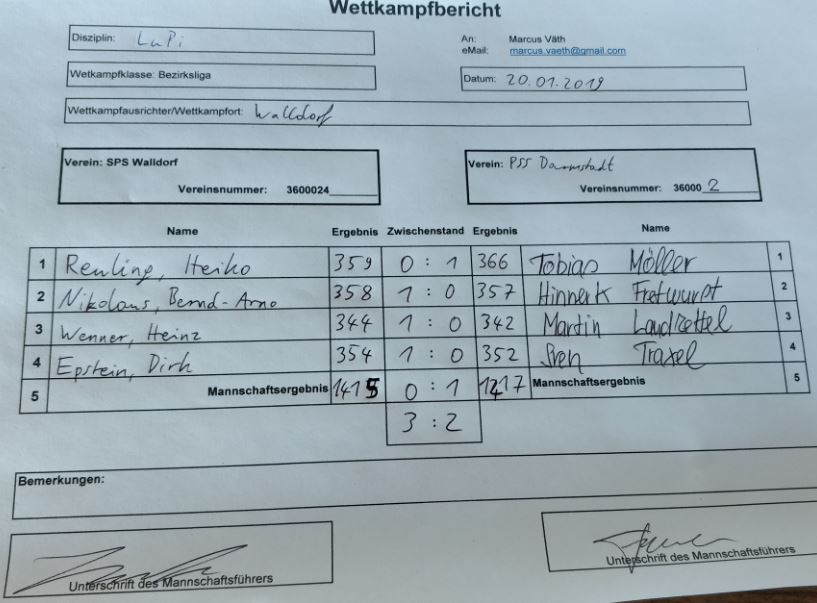 Wettkampfbericht
Disziplin: LuPi
An: Marcus Väth
eMail: marcus.vaeth@gmail.com
Wetkampfklasse: Bezirksliga
Datum: 20.01.2019
Wettkampfausrichter/Wettkampfort: Walldorf
Verein: SPS Walldorf
Verein: PSS Darmstadt
Vereinsnummer: 3600024
Vereinsnummer: 36000 2
Name Ergebnis Zwischenstand Ergebnis Name
1 Reuling, Heiko 359 0 : 1 366 Tobias Möller 1
2 Nikolaus, Bernd-Arno 358 1 : 0 357 Hinnerk Fretwurst 2
3 Wenner, Heinz 344 1 : 0 342 Martin Laudzettel 3
4 Epstein, Dirk 354 1 : 0 352 Sven Traxel 4
5 Mannschaftsergebnis 1415 0 : 1 Mannschaftsergebnis 5
3 : 2
Bemerkungen:
Unterschrift des Mannschaftsführers
Unterschrift des Mannschaftsführers